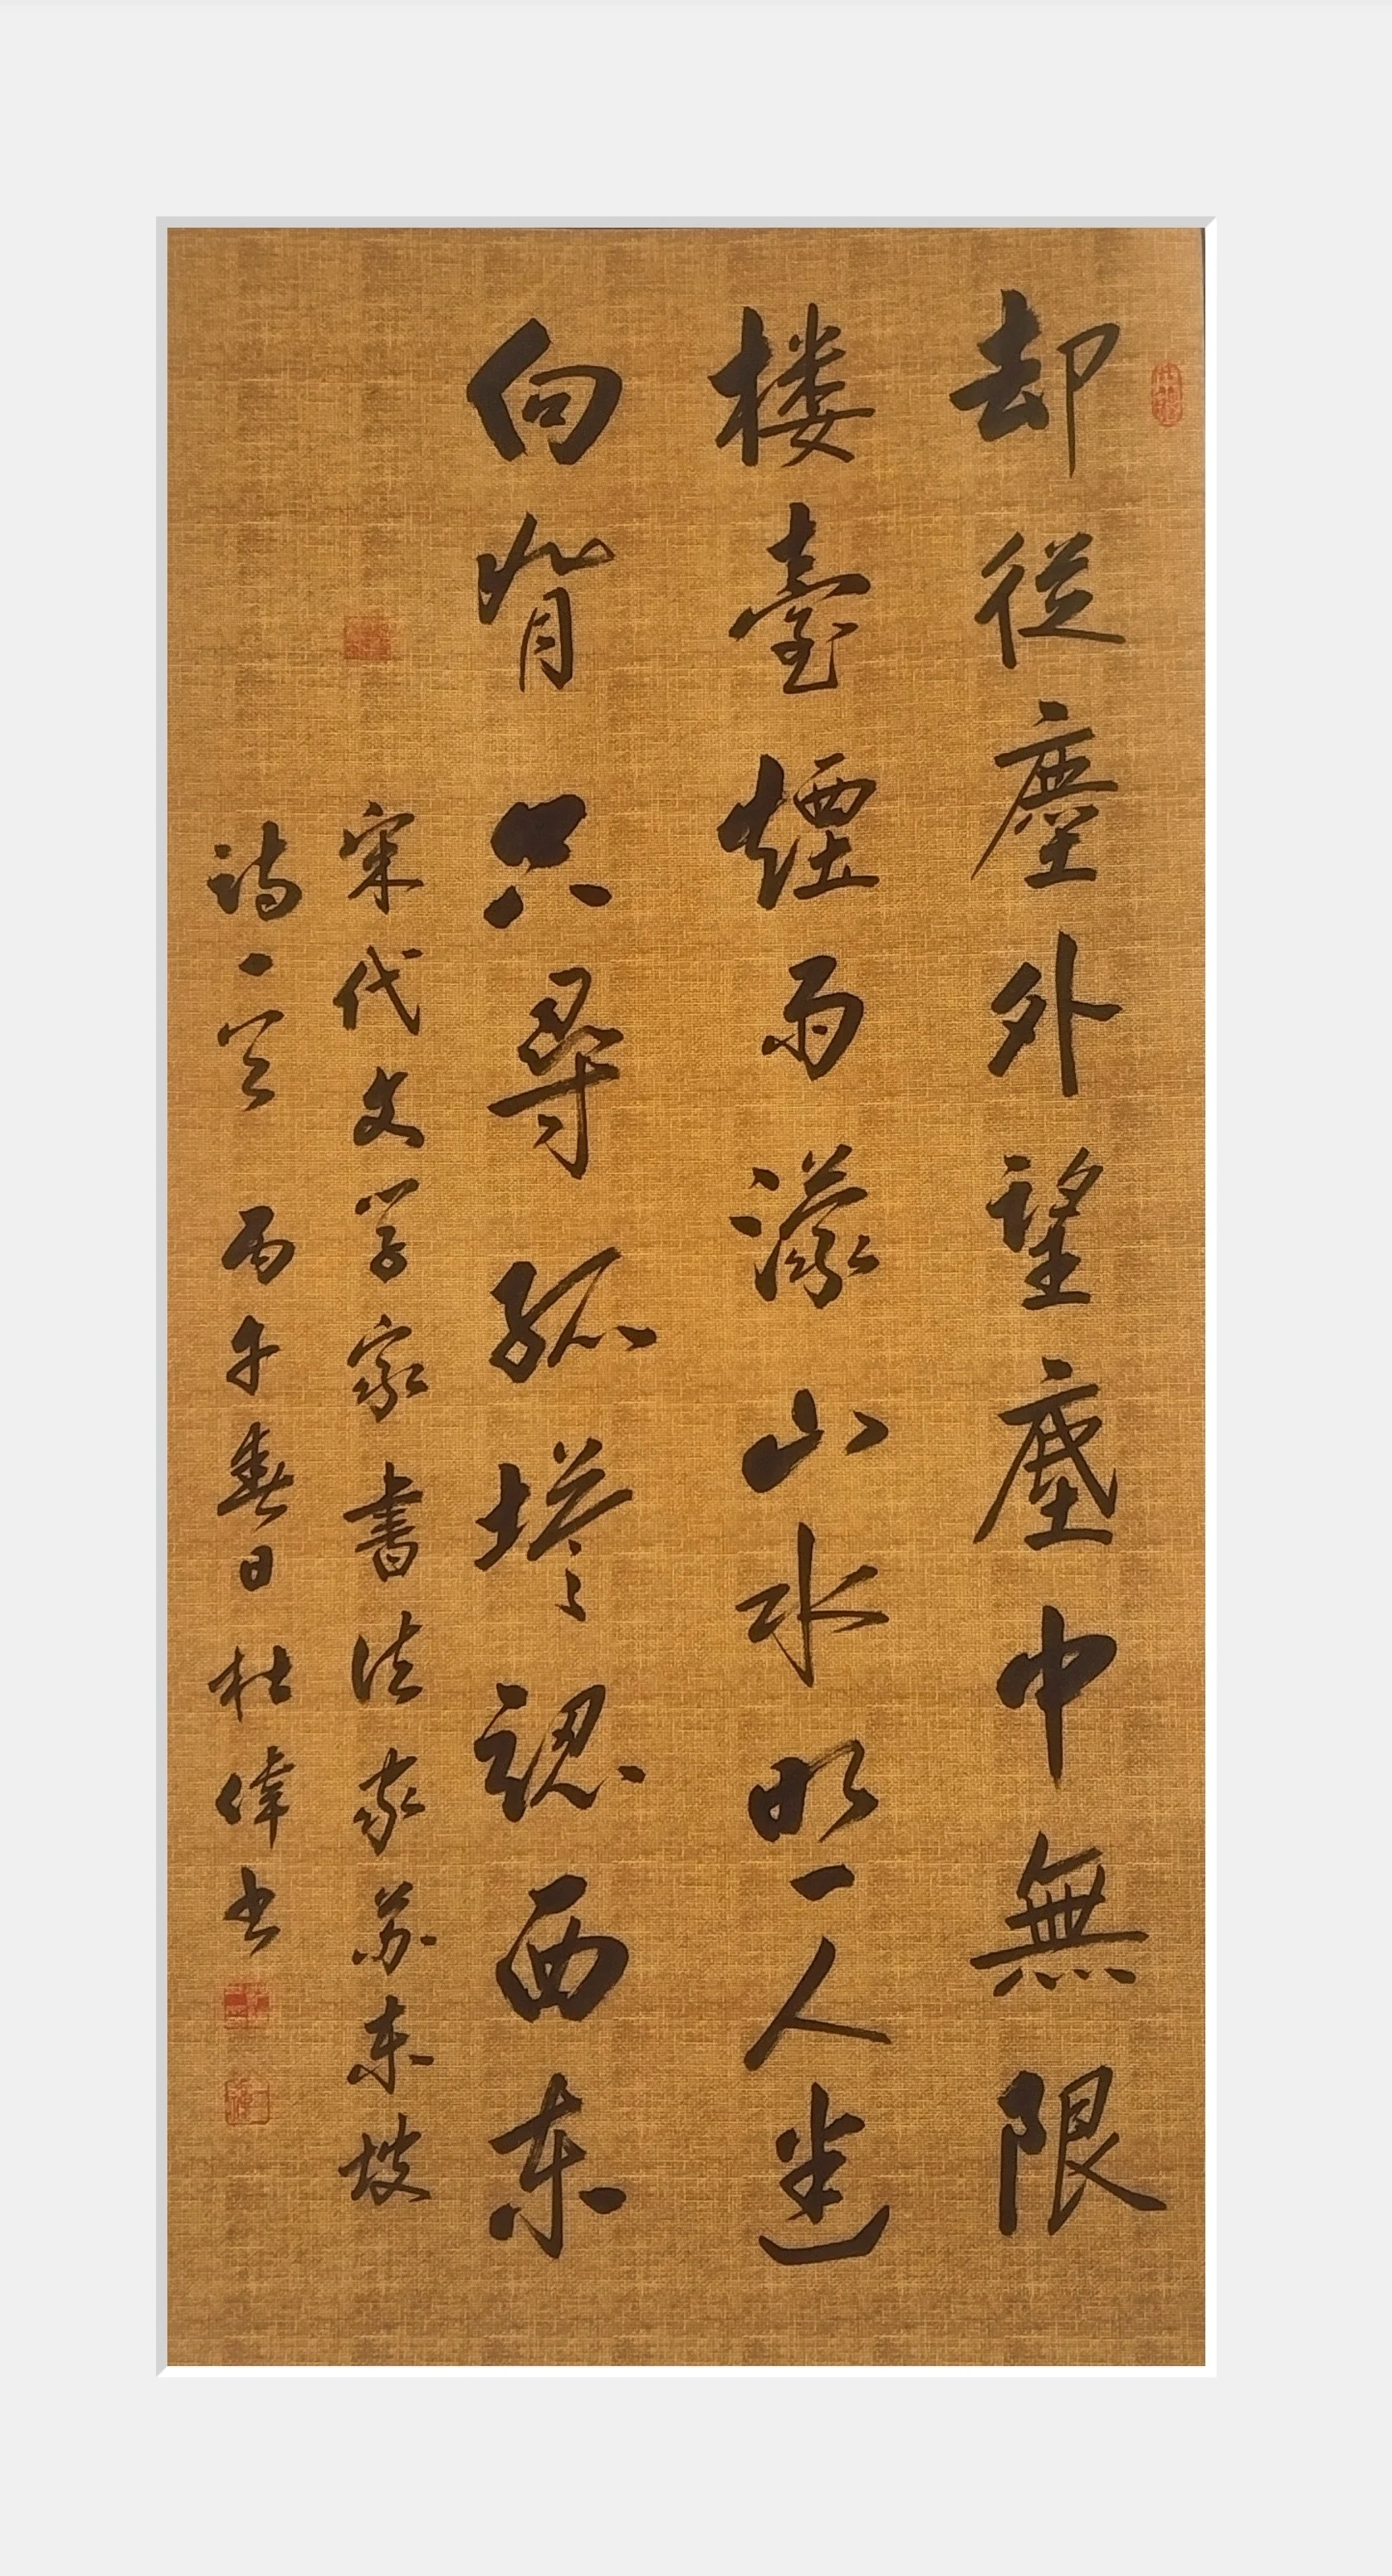 却從塵外望塵中無限
楼臺煙雨濛山水照人迷
向背只尋孤塔認西东
宋代文学家書法家苏东坡
詩一首 丙午春日 杜偉书